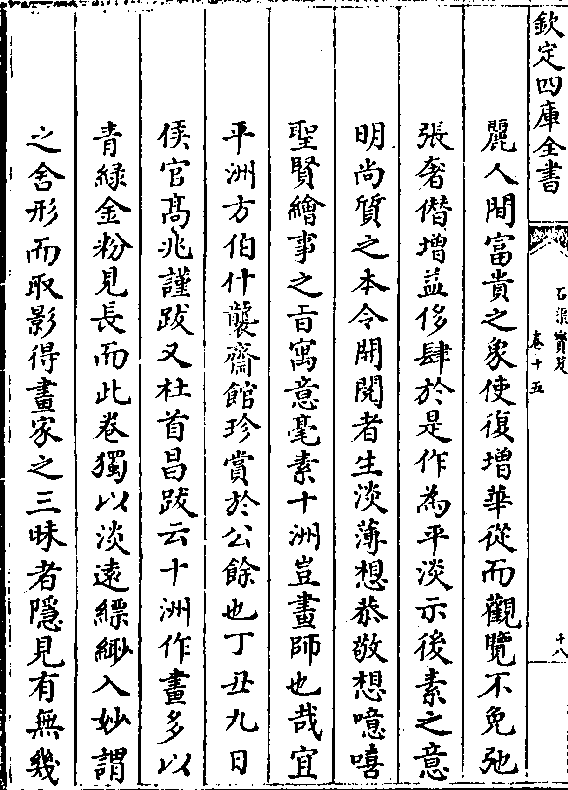 欽定四庫全書
石渠寶笈
卷十五
十八
麗人間富貴之象使復增華從而觀覽不免弛
張奢僭增益侈肆於是作為平淡示後素之意
明尚質之本令開閱者生淡薄想恭敬想噫嘻
聖賢繪事之旨寓意毫素十洲豈畫師也哉宜
平洲方伯什襲齋館珍賞於公餘也丁丑九日
侯官高兆謹跋又杜首昌跋云十洲作畫多以
青綠金粉見長而此卷獨以淡遠縹緲入妙謂
之舍形而取影得畫家之三昧者隱見有無幾